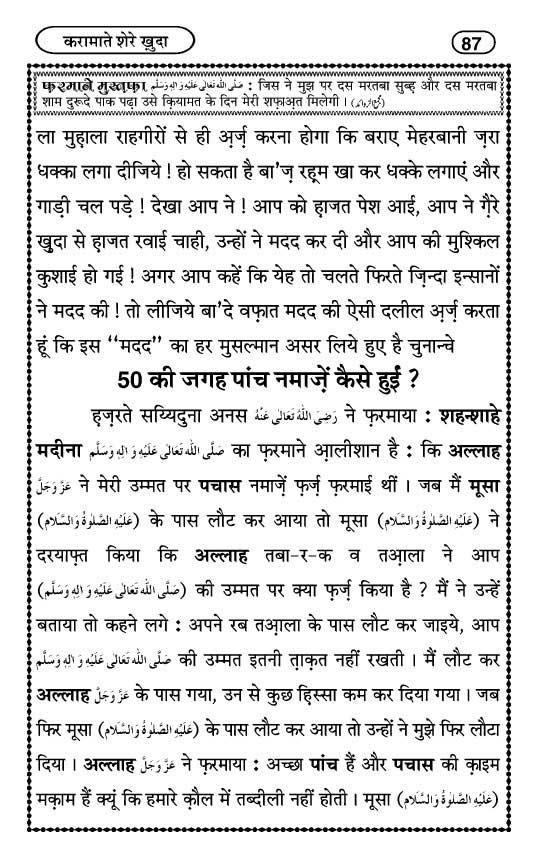 करामाते शेरे ख़ुदा
87
फ़रमाने मुस्तफ़ा صَلَّى اللهُ تَعَالٰى عَلَيْهِ وَاٰلِهٖ وَسَلَّم : जिस ने मुझ पर दस मरतबा सुब्ह और दस मरतबा
शाम दुरूदे पाक पढ़ा उसे क़ियामत के दिन मेरी शफ़ाअ़त मिलेगी। (مجمع الزوائد)
ला मुह़ाला राहगीरों से ही अ़र्ज़ करना होगा कि बराए मेहरबानी ज़रा
धक्का लगा दीजिये ! हो सकता है बा'ज़ रह़्म खा कर धक्के लगाएं और
गाड़ी चल पड़े ! देखा आप ने ! आप को ह़ाजत पेश आई, आप ने ग़ैरे
ख़ुदा से ह़ाजत रवाई चाही, उन्हों ने मदद कर दी और आप की मुश्किल
कुशाई हो गई ! अगर आप कहें कि येह तो चलते फिरते ज़िन्दा इन्सानों
ने मदद की ! तो लीजिये बा'दे वफ़ात मदद की ऐसी दलील अ़र्ज़ करता
हूं कि इस ‘‘मदद’’ का हर मुसल्मान असर लिये हुए है चुनान्चे
50 की जगह पांच नमाज़ें कैसे हुईं ?
ह़ज़रते सय्यिदुना अनस رَضِىَ اللهُ تَعَالٰى عَنْهُ ने फ़रमाया : शहन्शाहे
मदीना صَلَّى اللهُ تَعَالٰى عَلَيْهِ وَاٰلِهٖ وَسَلَّم का फ़रमाने आ़लीशान है : कि अल्लाह
عَزَّوَجَلَّ ने मेरी उम्मत पर पचास नमाज़ें फ़र्ज़ फ़रमाई थीं । जब मैं मूसा
(عَلَيْهِ الصَّلٰوةُ وَالسَّلَام) के पास लौट कर आया तो मूसा (عَلَيْهِ الصَّلٰوةُ وَالسَّلَام) ने
दरयाफ़्त किया कि अल्लाह तबा-र-क व तआ़ला ने आप
(صَلَّى اللهُ تَعَالٰى عَلَيْهِ وَاٰلِهٖ وَسَلَّم) की उम्मत पर क्या फ़र्ज़ किया है ? मैं ने उन्हें
बताया तो कहने लगे : अपने रब तआ़ला के पास लौट कर जाइये, आप
صَلَّى اللهُ تَعَالٰى عَلَيْهِ وَاٰلِهٖ وَسَلَّم की उम्मत इतनी त़ाक़त नहीं रखती । मैं लौट कर
अल्लाह عَزَّوَجَلَّ के पास गया, उन से कुछ ह़िस्सा कम कर दिया गया। जब
फिर मूसा (عَلَيْهِ الصَّلٰوةُ وَالسَّلَام) के पास लौट कर आया तो उन्हों ने मुझे फिर लौटा
दिया । अल्लाह عَزَّوَجَلَّ ने फ़रमाया : अच्छा पांच हैं और पचास की क़ाइम
मक़ाम हैं क्यूं कि हमारे क़ौल में तब्दीली नहीं होती । मूसा (عَلَيْهِ الصَّلٰوةُ وَالسَّلَام)